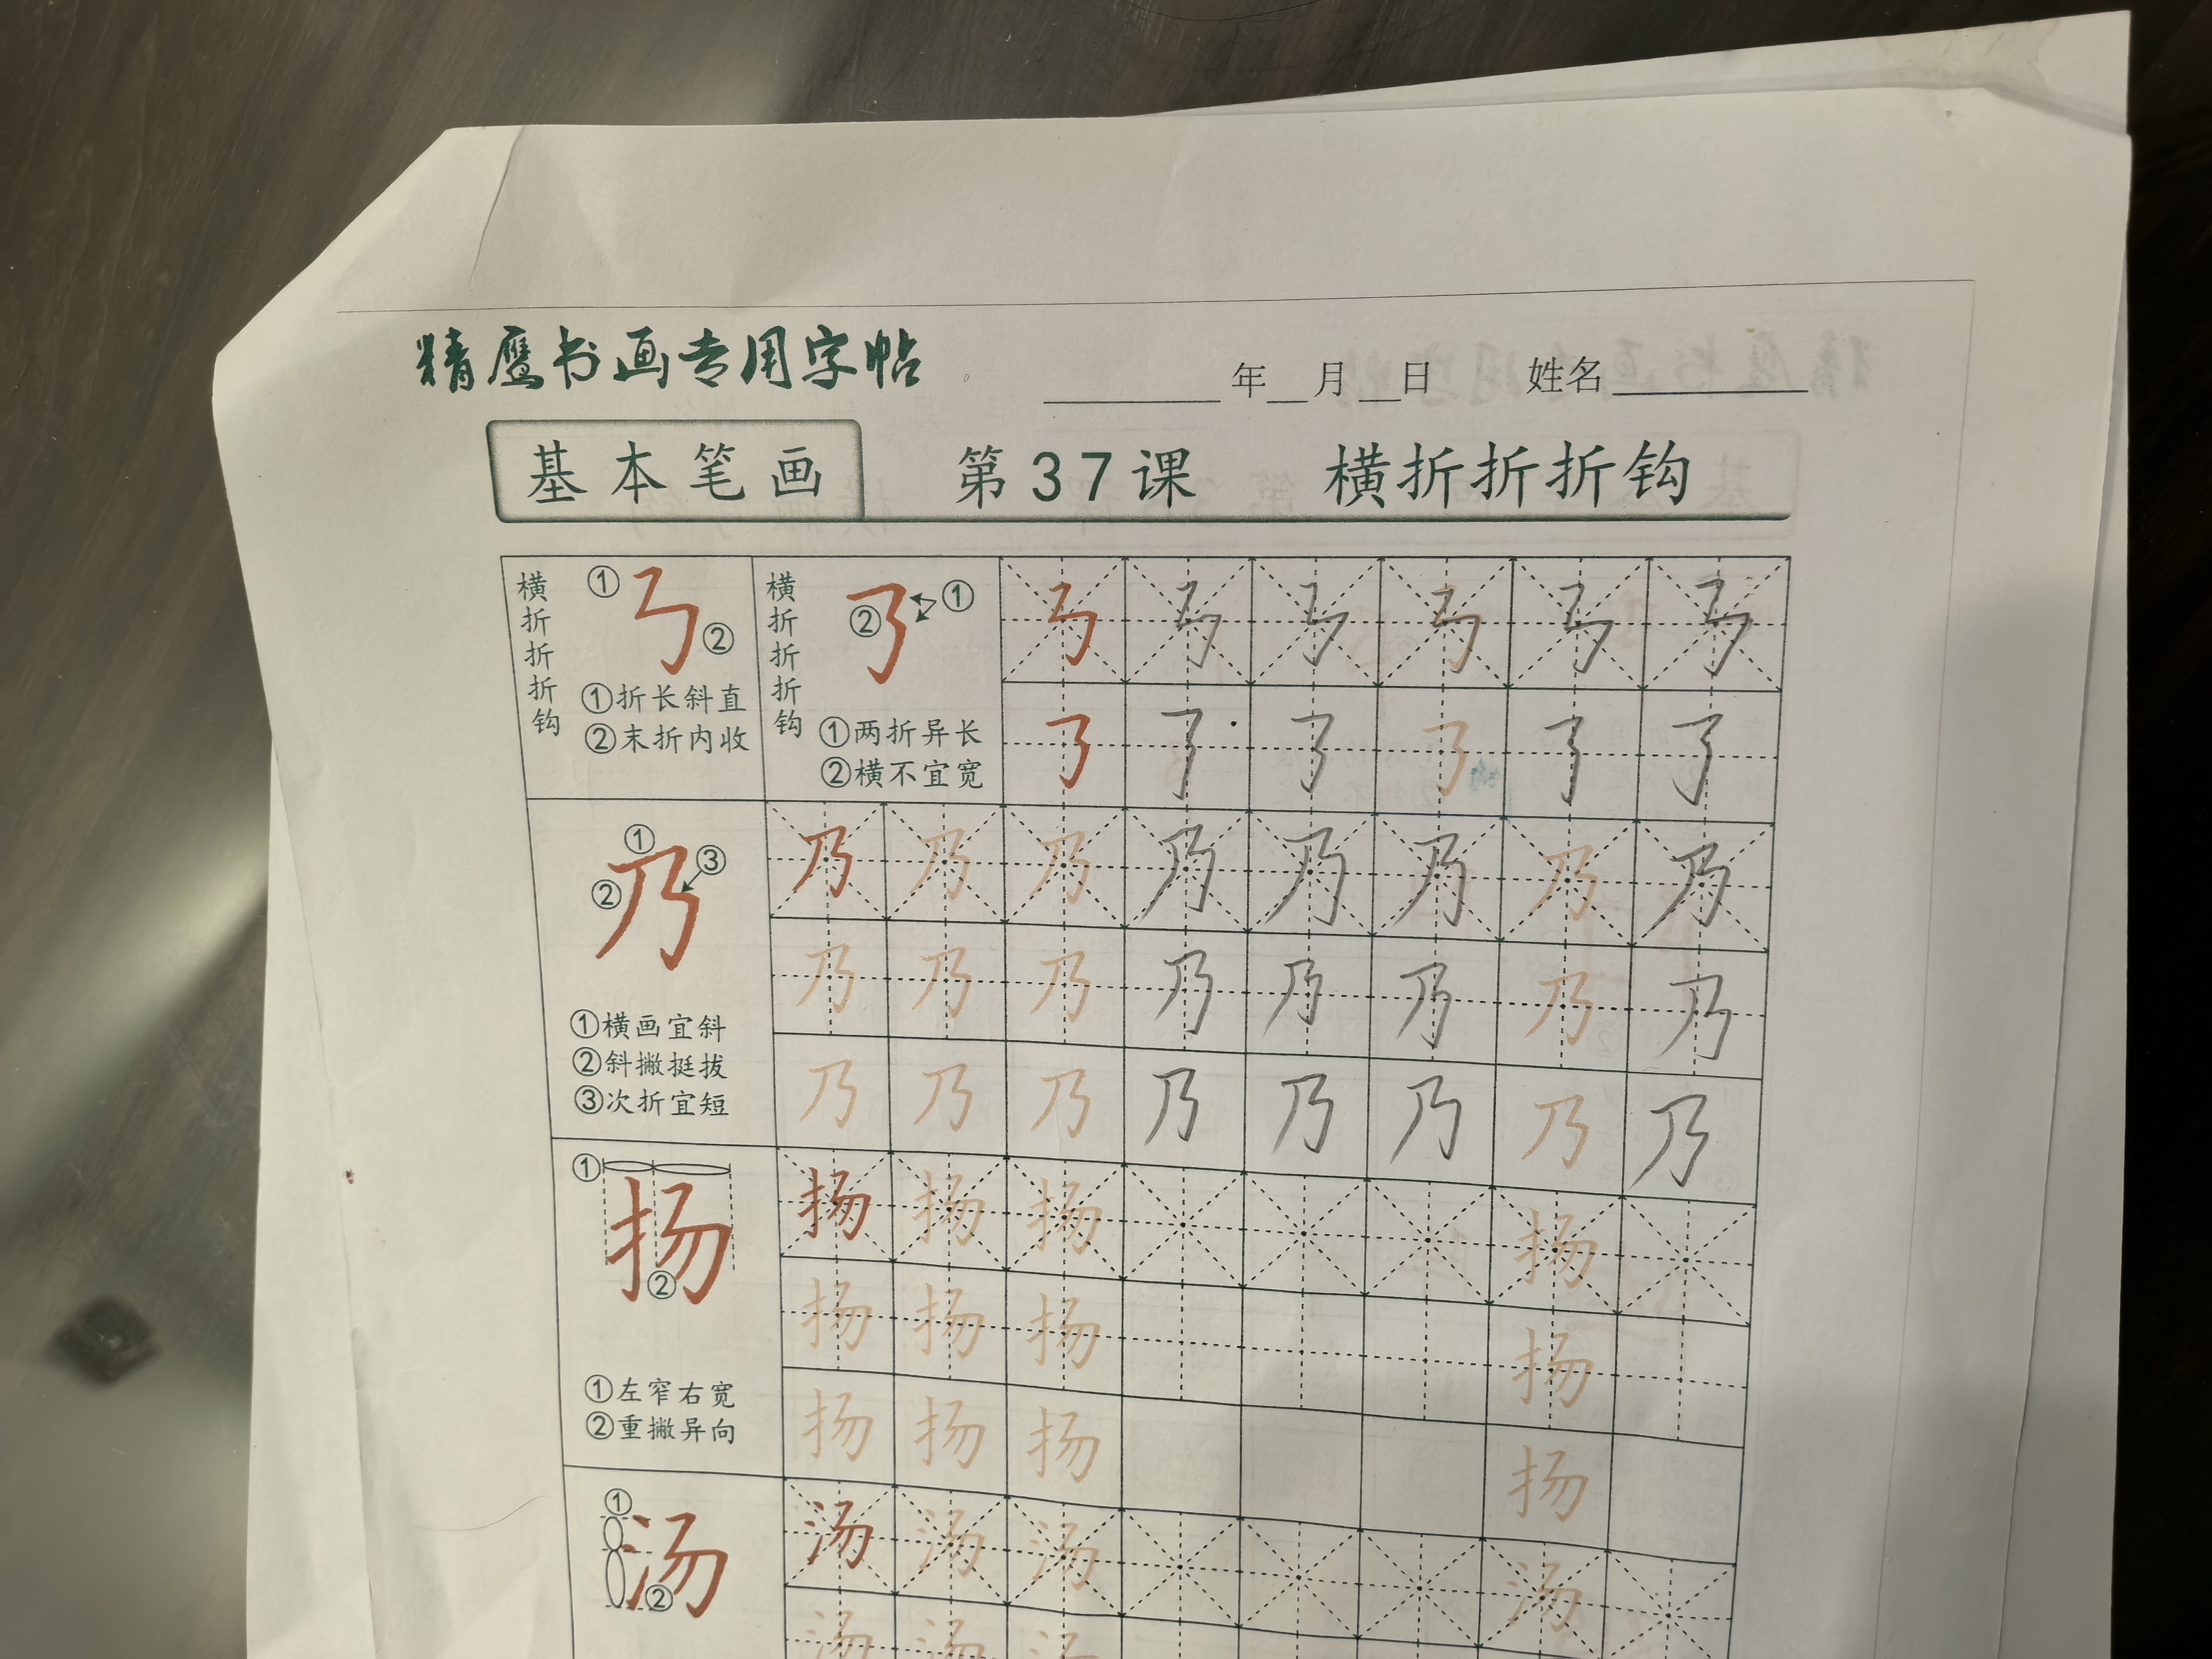 精鹰书画专用字帖
年 月 日 姓名
基本笔画 第37课 横折折折钩
横折折折钩
① ②
①折长斜直
②末折内收
横折折折钩
② ①
①两折异长
②横不宜宽
① ② ③
乃
①横画宜斜
②斜撇挺拔
③次折宜短
乃 乃 乃 乃 乃 乃 乃 乃
乃 乃 乃 乃 乃 乃 乃 乃
乃 乃 乃 乃 乃 乃 乃 乃
①
扬
②
①左窄右宽
②重撇异向
扬 扬 扬 扬
扬 扬 扬 扬
扬 扬 扬 扬
①
汤
②
汤 汤 汤 汤
汤 汤 汤